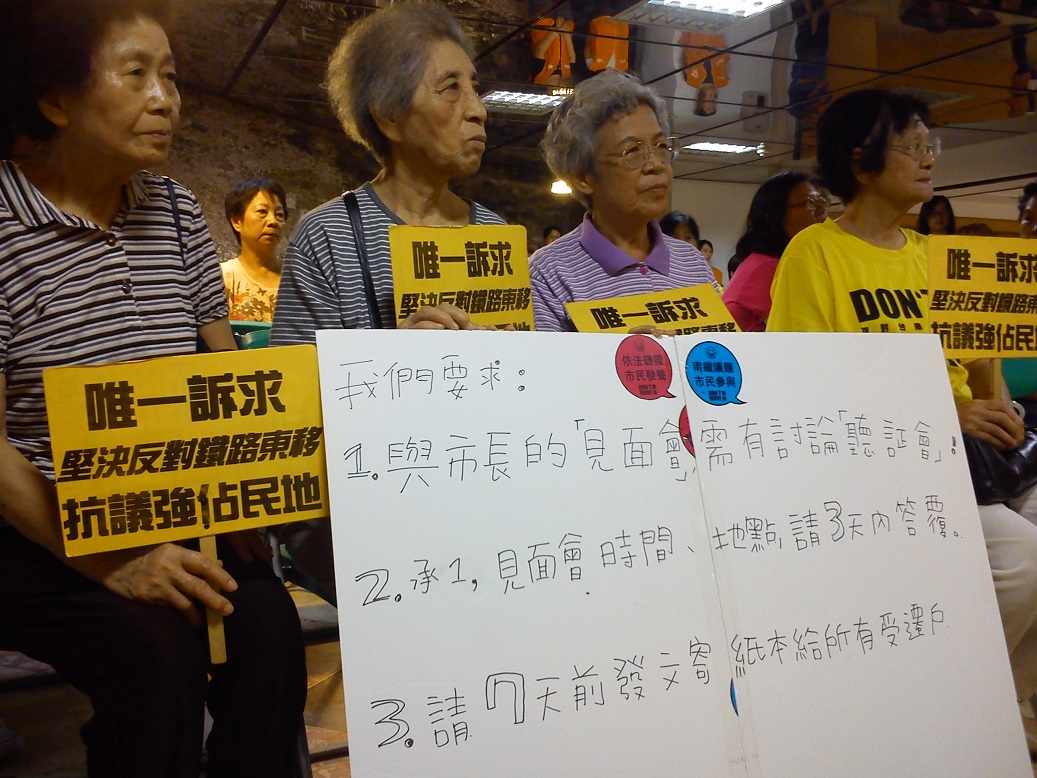 唯一訴求
堅決反對鐵路東移
抗議強佔民地
唯一訴求
堅決反對鐵路東移
唯一訴求
DON'T
唯一訴求
堅決反對鐵路東移
抗議強佔民地
依法聽證
市民發聲
南鐵議題
市民參與
我們要求:
1.與市長的「見面會」,需有討論「聽証會」!
2.承1,見面會時間、地點,請3天內答覆。
3.請7天前發文寄紙本給所有受遷戶